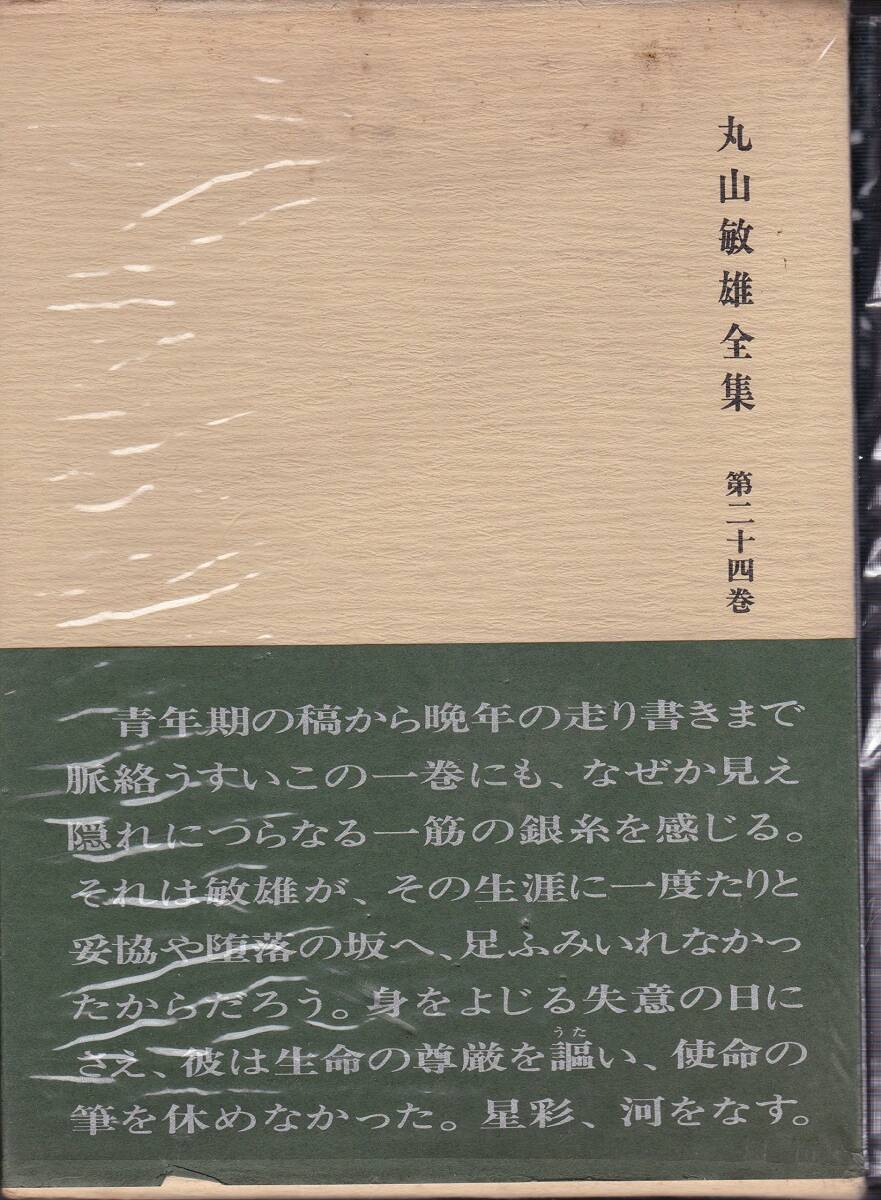 丸山敏雄全集 第二十四巻
青年期の稿から晩年の走り書きまで
脈絡うすいこの一巻にも、なぜか見え
隠れにつらなる一筋の銀糸を感じる。
それは敏雄が、その生涯に一度たりと
妥協や堕落の坂へ、足ふみいれなかっ
たからだろう。身をよじる失意の日に
さえ、彼は生命の尊厳を謳い、使命の
うた
筆を休めなかった。星彩、河をなす。